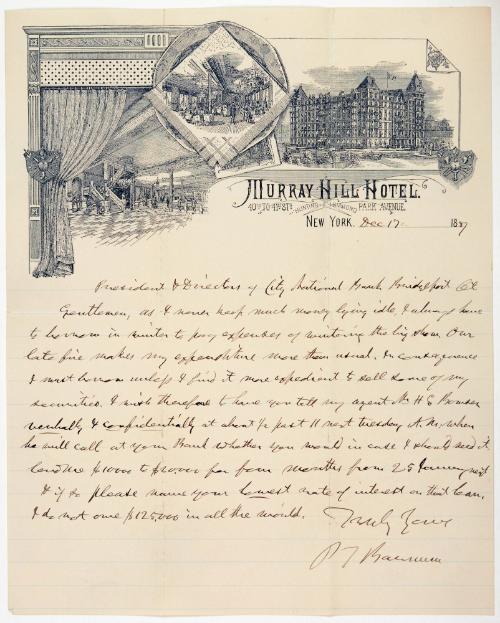 MURRAY HILL HOTEL.
40TH TO 41ST STS. PARK AVENUE.
HUNTING & HAMMOND
NEW YORK. Dec 17 1887
President & Directors of City National Bank Bridgeport Ct
Gentlemen, as I never keep much money lying idle, I always have
to borrow in winter to pay expenses of wintering the big show. Our
late fire makes my expenditure more than usual. In consequence
I must borrow unless I find it more expedient to sell some of my
securities. I wish therefore to have you tell my agent Mr H E Bowser
verbally & confidentially at about ½ past 11 next tuesday A.M. when
he will call at your Bank whether you would in case I should need it
lend me to for four months from 25 January next
& if so please name your lowest rate of interest on that loan.
I do not owe $125000 in all the world.
Truly Yours
P T Barnum